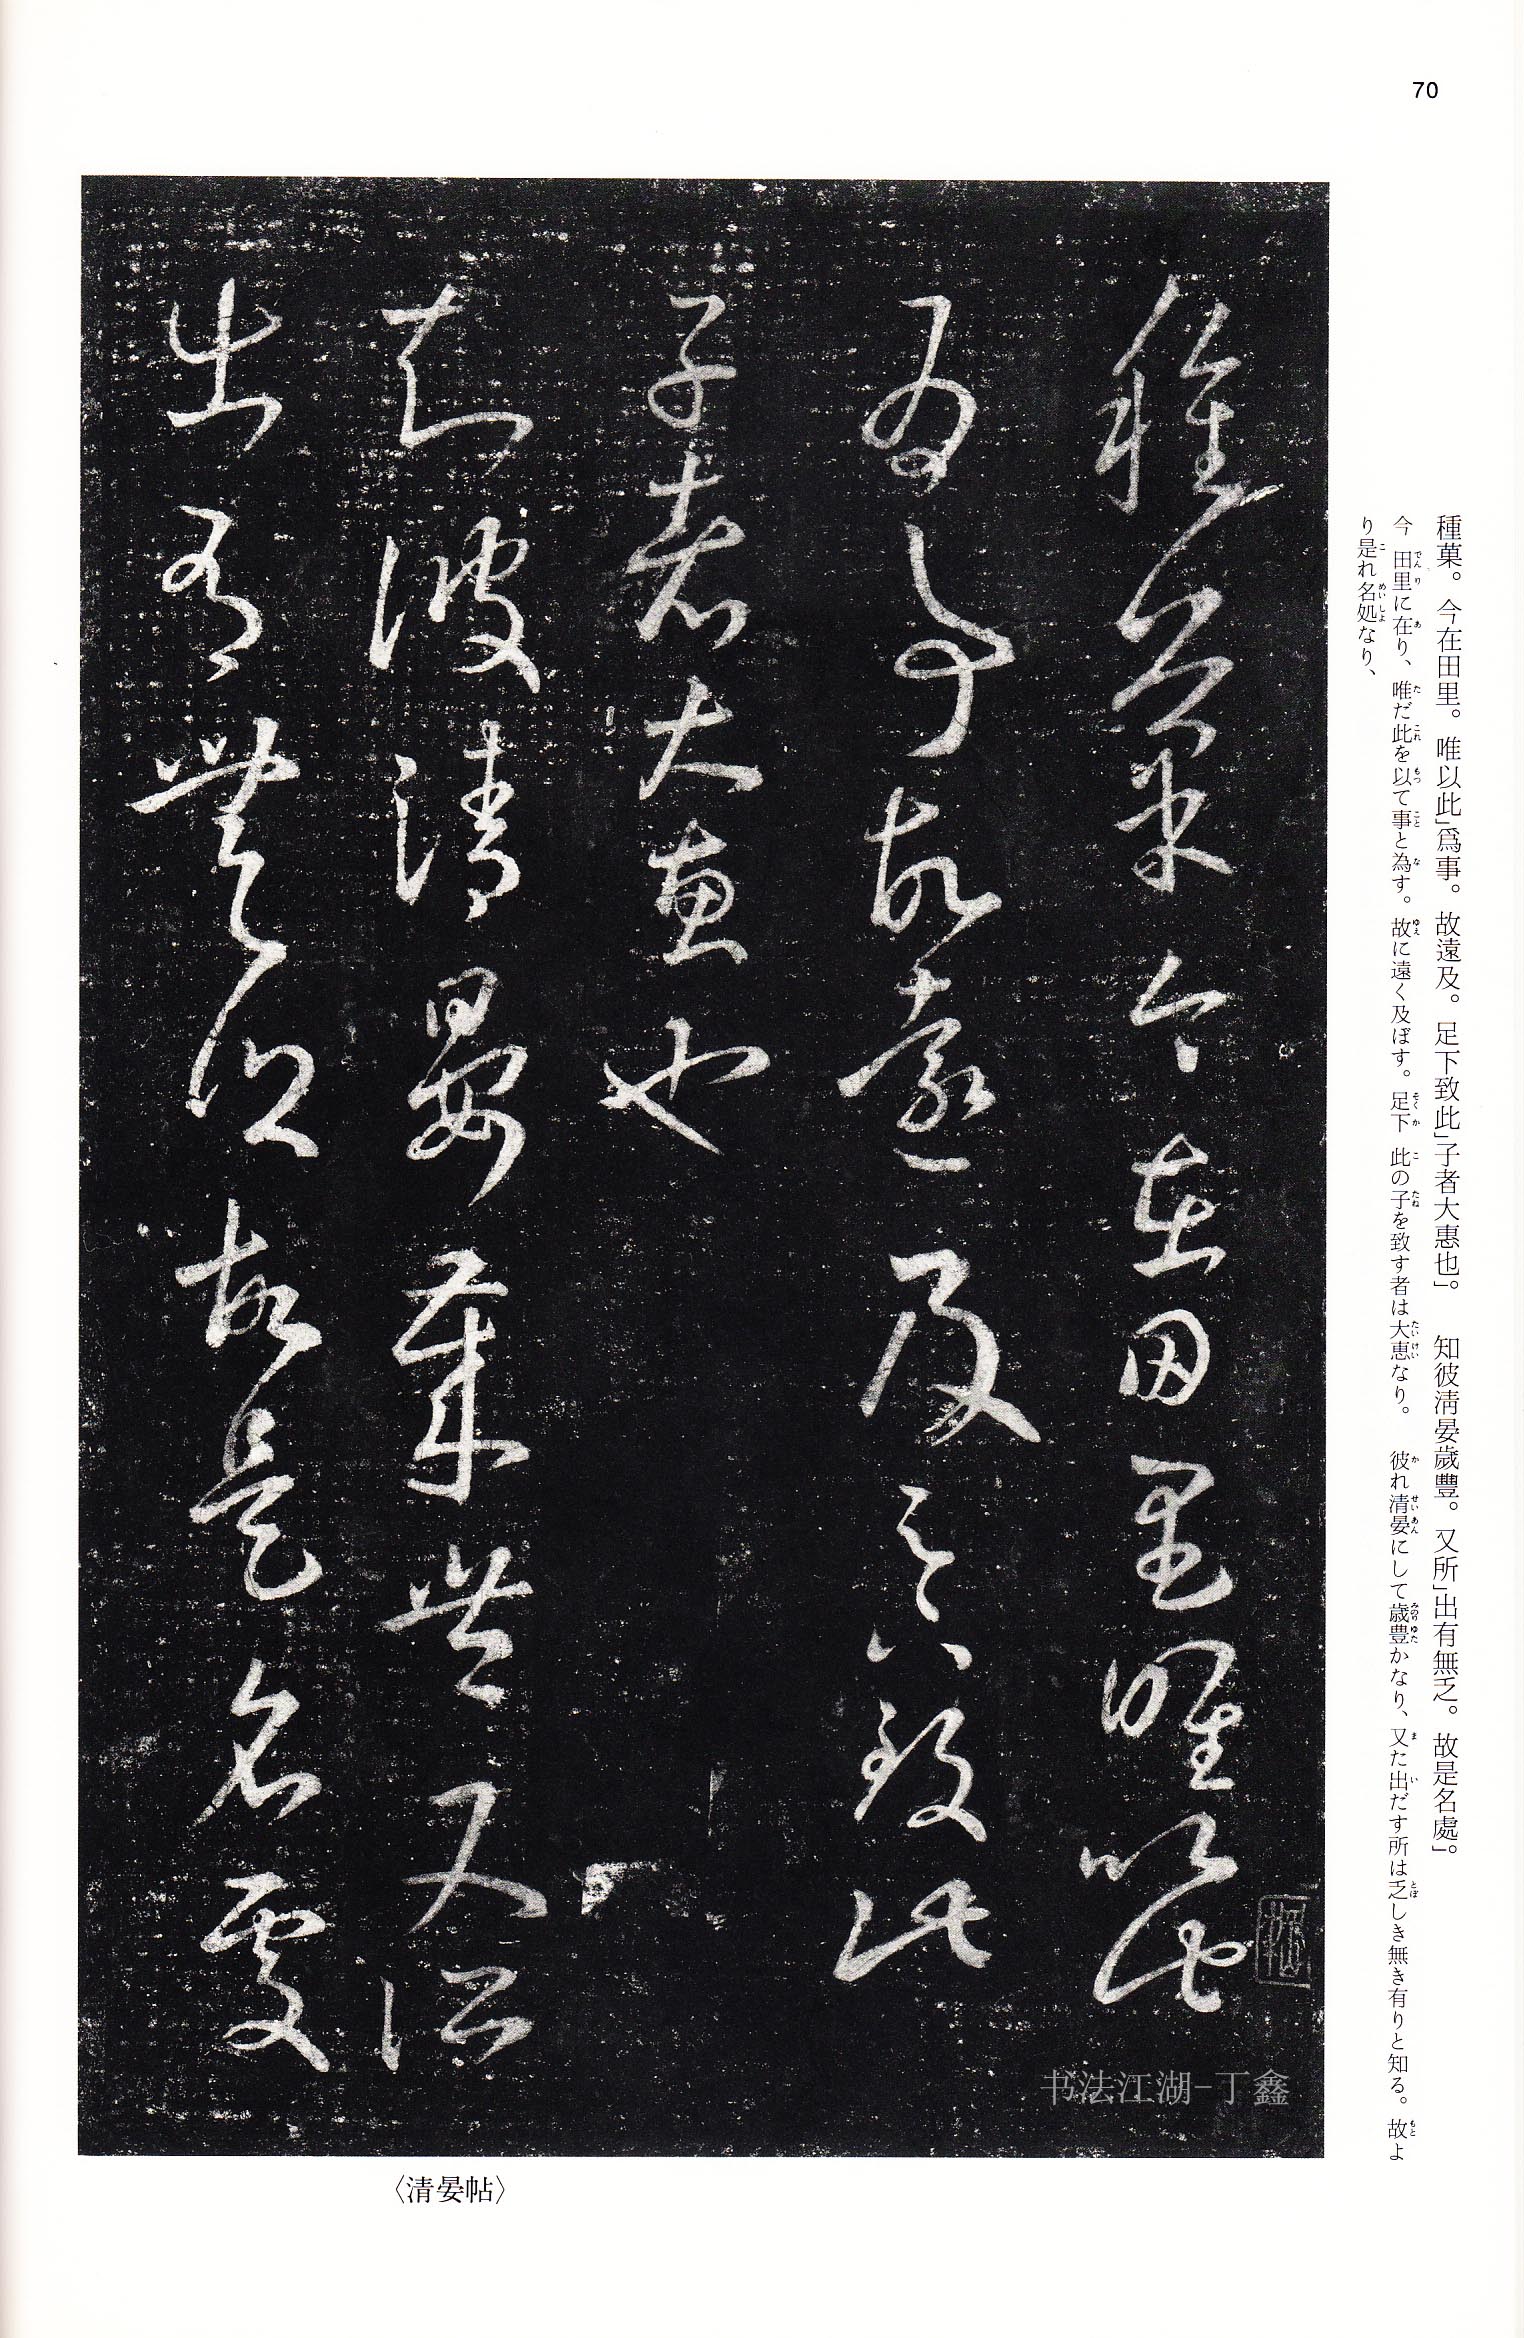 70
種菓。今在田里。唯以此」爲事。故遠及。足下致此」子者大惠也」。　知彼淸晏歲豐。又所」出有無乏。故是名處」。
今田里に在り、唯だ此を以て事と為す。故に遠く及ぼす。足下此の子を致す者は大恵なり。　彼れ清晏にして歳豊かなり、又た出だす所は乏しき無き有りと知る。故よ
り是れ名処なり、
種菓今在田里唯以此
爲事故遠及足下致此
子者大惠也
知彼清晏歲豐又所
出有無乏故是名處
书法江湖-丁鑫
〈清晏帖〉